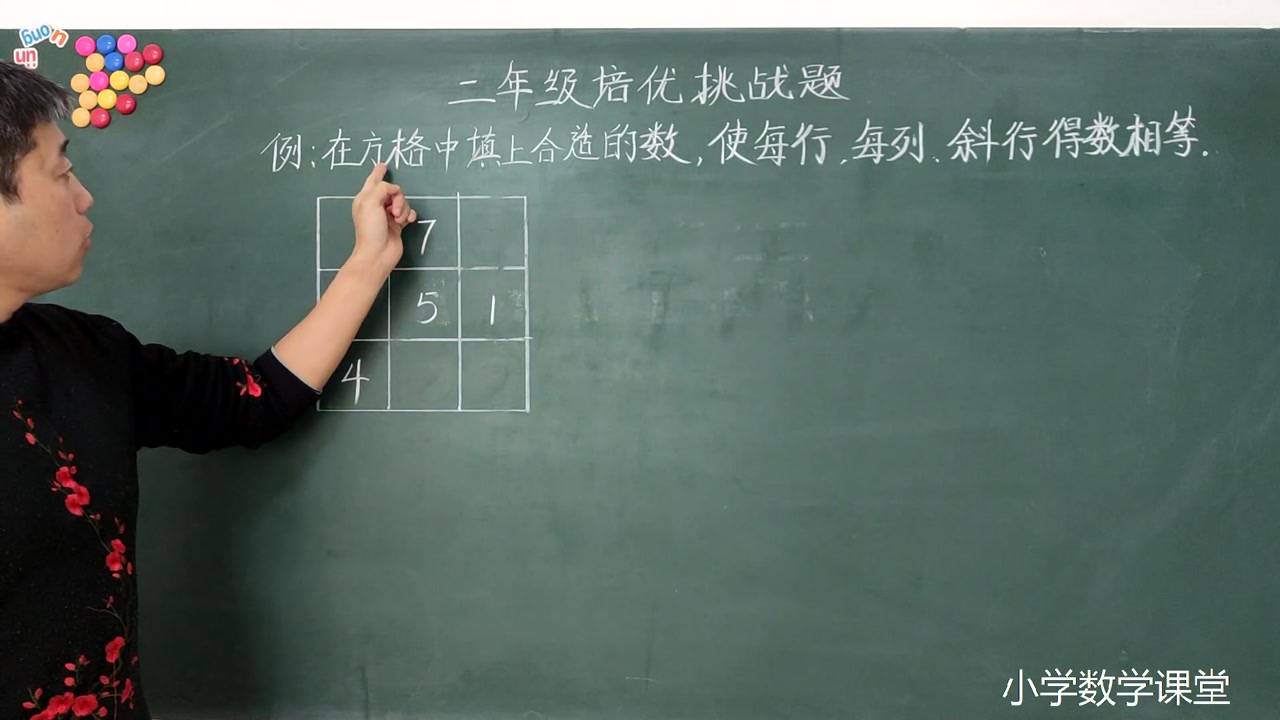 二年级培优挑战题
例:在方格中填上合适的数,使每行、每列、斜行得数相等.
7
5 1
4
小学数学课堂